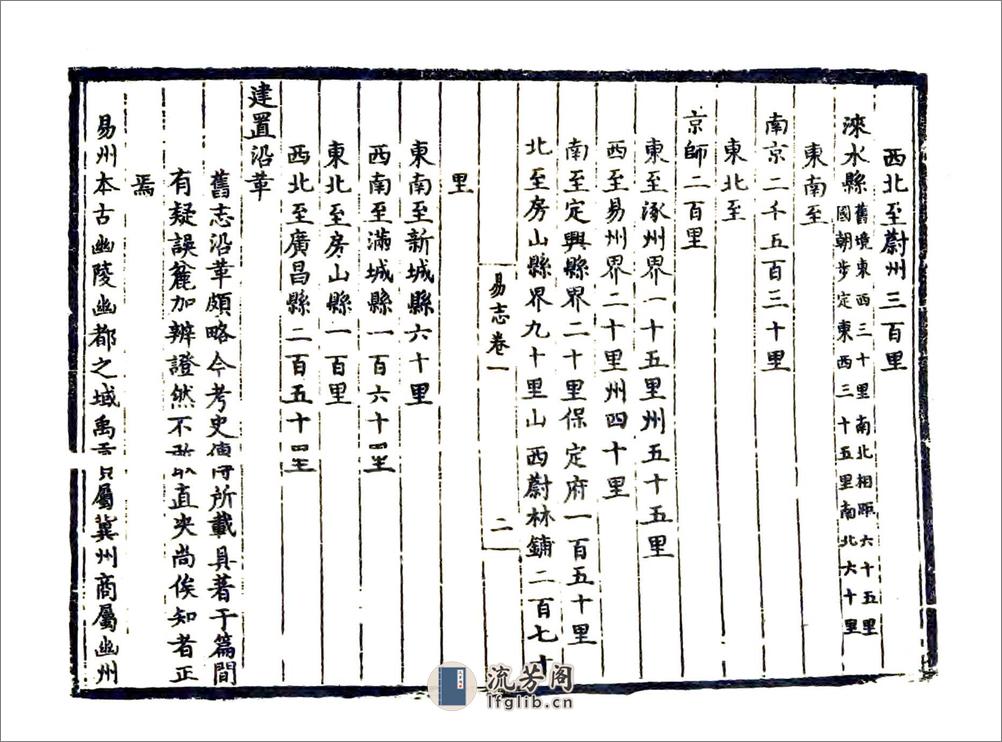 西北至蔚州三百里
淶水縣舊境東西三十里南北相距六十五里
國朝步定東西三十五里南北六十里
東南至
南京二千五百三十里
東北至
京師二百里
東至涿州界一十五里州五十五里
西至易州界二十里州四十里
南至定興縣界二十里保定府一百五十里
北至房山縣界九十里山西蔚林鋪二百七十
易志卷一
二
里
東南至新城縣六十里
西南至滿城縣一百六十里
東北至房山縣一百里
西北至廣昌縣二百五十里
建置沿革
舊志沿革頗略今考史傳所載具著于篇間
有疑誤麄加辨證然不敢直决尚俟知者正
焉
易州本古幽陵幽都之域禹貢屬冀州商屬幽州
流芳阁
lfglib.cn